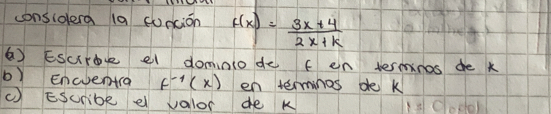 considera la función f(x) = \frac{3x+4}{2x+k}
a) Escribe el dominio de f en terminos de k
b) Encuentra f^{-1}(x) en términos de k
c) Escribe el valor de k